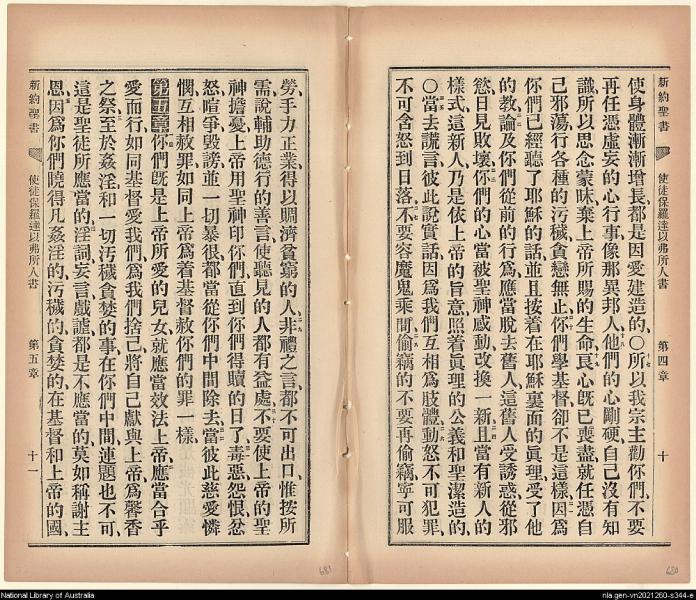 新約聖書
使徒保羅達以弗所人書
第四章
十
使身體漸漸增長都是因愛建造的、○所以我宗主勸你們不要
再任憑虛妄的心行事像那異邦人、他們的心剛硬自己沒有知
識所以思念蒙昧棄上帝所賜的生命、良心旣已喪盡就任憑自
己邪蕩行各種的污穢貪戀無止、你們學基督卻不是這樣因爲
你們已經聽了耶穌的話並且按着在耶穌裏面的眞理受了他
的教論及你們從前的行爲應當脫去舊人這舊人受誘惑從邪
慾日見敗壞你們的心當被聖神感動改換一新且當有新人的
樣式這新人乃是依上帝的旨意照着眞理的公義和聖潔造的、
○當去謊言彼此說實話因爲我們互相爲肢體動怒不可犯罪、
不可含怒到日落、不要容魔鬼乘間、偷竊的不要再偷竊、寧可服
勞、手力正業得以賙濟貧窮的人、非禮之言都不可出口、惟按所
需說輔助德行的善言使聽見的人都有益處、不要使上帝的聖
神擔憂上帝用聖神印你們直到你們得贖的日子、毒惡怨恨忿
怒喧爭毀謗並一切暴很都當從你們中間除去、當彼此慈愛憐
憫互相赦罪如同上帝爲着基督赦你們的罪一樣
第五章你們旣是上帝所愛的兒女就應當效法上帝、應當合乎
愛而行如同基督愛我們爲我們捨己將自己獻與上帝爲馨香
之祭至於姦淫和一切污穢貪婪的事在你們中間連題也不可、
這是聖徒所應當的、淫詞妄言戲謔都是不應當的莫如稱謝主
恩、因爲你們曉得凡姦淫的、污穢的、貪婪的在基督和上帝的國、
新約聖書
使徒保羅達以弗所人書
第五章
十一
681
680
National Library of Australia
nla.gen-vn2021260-s344-e